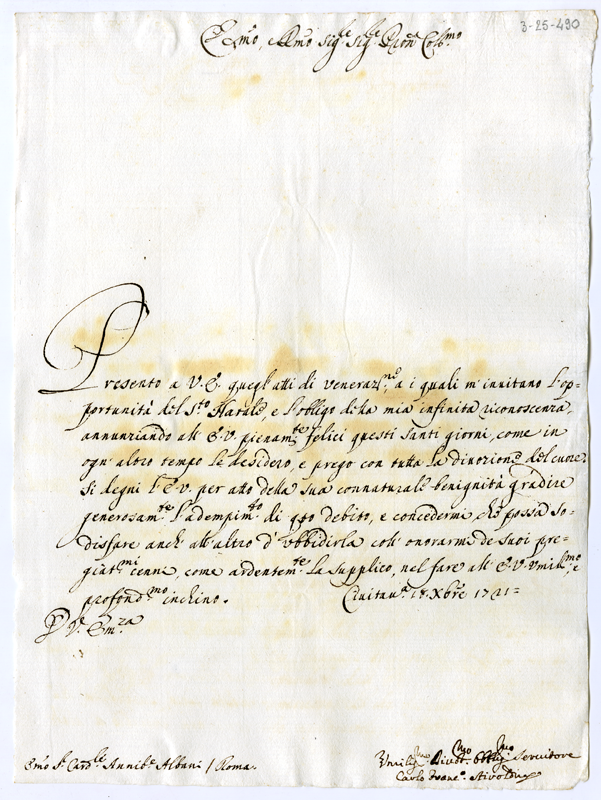 3-25-490
Em̃o, e Rm̃o Sig.re Sig.re Pron Col.mo
Presento a V.E. quegl'atti di veneraz.ni, a i quali m'invitano l'op-
portunità del S.to Natale, e l'obligo della mia infinita riconoscenza,
annunziando all' E.V. pienam.te felici questi Santi giorni, come in
ogn'altro tempo le desidero, e prego con tutta la divozione del cuore
si degni l'E.V. per atto della sua connaturale benignità gradire
generosam.te l'adempim.to di q̃to debito, e concedermi che possa so-
disfare anch' all'altro d' ubbidirla coll' onorarmi de suoi pre-
giat.mi cenni, come ardentem.te la supplico, nel fare all' E.V. umil.mo, e
profond.mo inchino. Civitau.a 18. Xbre 1721=
V.ra Em.za
Em̃o S.r Card.le Annib.e Albani / Roma.
Umilis.mo Divot.mo Obblig.mo Servitore
Carlo Fran.co